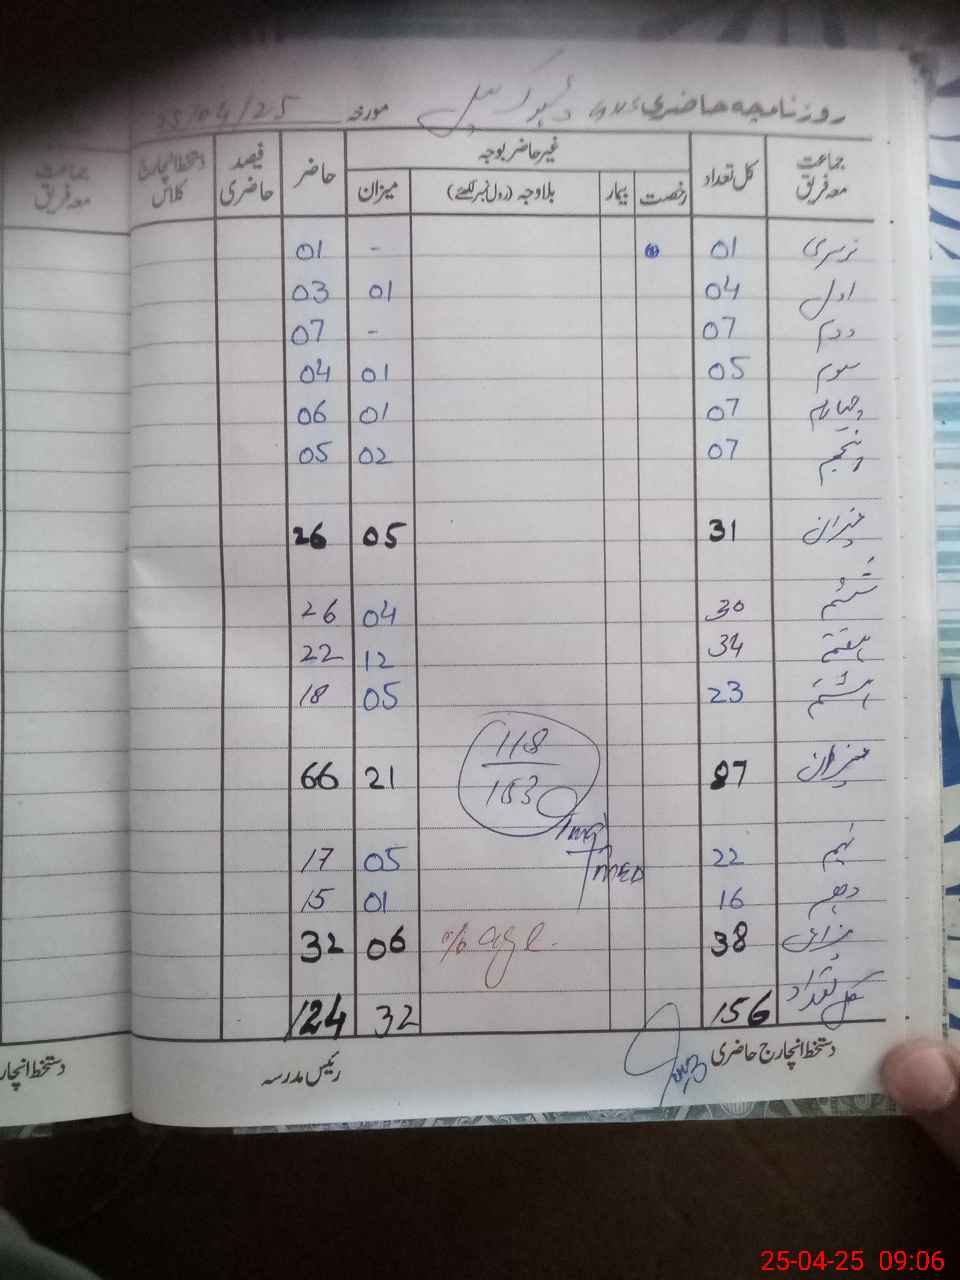 روزنامچہ حاضری مورخہ 25/04/25
جماعت معہ فریق کل تعداد غیر حاضر بوجہ حاضر فیصد حاضری دستخط انچارج کلاس جماعت معہ فریق
رخصت بیمار بلاوجہ (رول نمبر لکھئے) میزان
نرسری 01 - 01
اول 04 01 03
دوم 07 - 07
سوم 05 01 04
چہارم 07 01 06
پنجم 07 02 05
میزان 31 05 26
ششم 30 04 26
ہفتم 34 12 22
ہشتم 23 05 18
118
میزان 87 21 66
153
نہم 22 05 17
دہم 16 01 15
میزان 38 %age. 06 32
کل تعداد 156 32 124
دستخط انچارج حاضری رئیس مدرسہ دستخط انچار
25-04-25 09:06